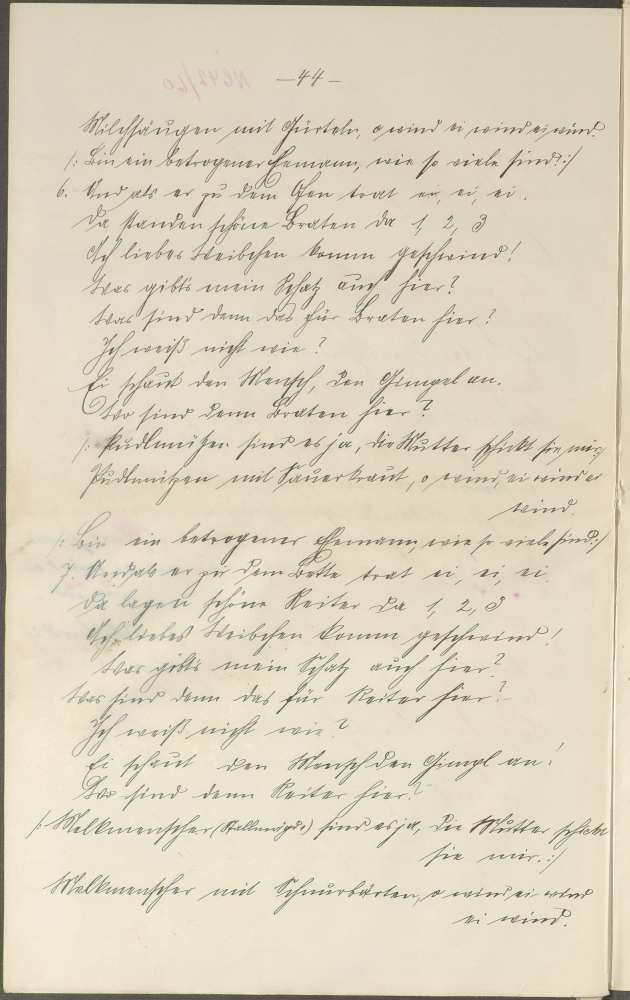 — 44 —
Milchsäugen mit Gürteln, o wind ei wind ei wind.
/: Bin ein betrogener Ehemann, wie so viele sind! :/
6. Und als er zu dem Ofen trat ei, ei, ei.
Da standen schöne Braten da 1, 2, 3
Ach liebes Weibchen komm geschwind!
Was gibts mein Schatz auch hier?
Was sind denn das für Braten hier?
Ich weiß nicht wie?
Ei schaut den Mensch, den Gimpel an.
Wo sind denn Braten hier?
/: Pudlmützen sind es ja, die Mutter schickt sie mir,
Pudlmützen mit Sauerkraut, o wind, ei wind ei
wind.
/: Bin ein betrogener Ehemann, wie so viele sind :/
7. Und als er zu dem Bette trat ei, ei, ei
Da lagen schöne Reiter da 1, 2, 3
Ach liebes Weibchen komm geschwind!
Was gibts mein Schatz auch hier?
Was sind denn das für Reiter hier?
Ich weiß nicht wie?
Ei schaut den Mensch den Gimpl an!
Wo sind denn Reiter hier?
/: Melkmenscher (Stallmägde) sind es ja, die Mutter schickt
sie mir. :/
Melkmenscher mit Schnurbärten, o wind ei wind
ei wind.